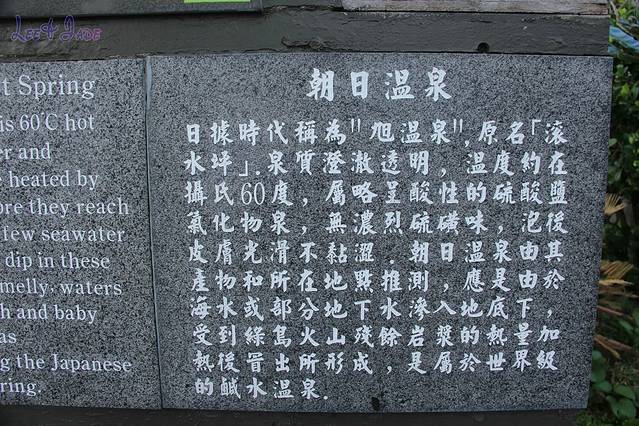 Lee & Jade
t Spring
is 60°C hot
er and
e heated by
ore they reach
few seawater
dip in these
melly; waters
h and baby
as
g the Japanese
ring.
朝日溫泉
日據時代稱為"旭溫泉",原名「滾
水坪」.泉質澄澈透明,溫度約在
攝氏60度,屬略呈酸性的硫酸鹽
氯化物泉,無濃烈硫磺味,泡後
皮膚光滑不黏澀.朝日溫泉由其
產物和所在地點推測,應是由於
海水或部分地下水滲入地底下,
受到綠島火山殘餘岩漿的熱量加
熱後冒出所形成,是屬於世界級
的鹹水溫泉.